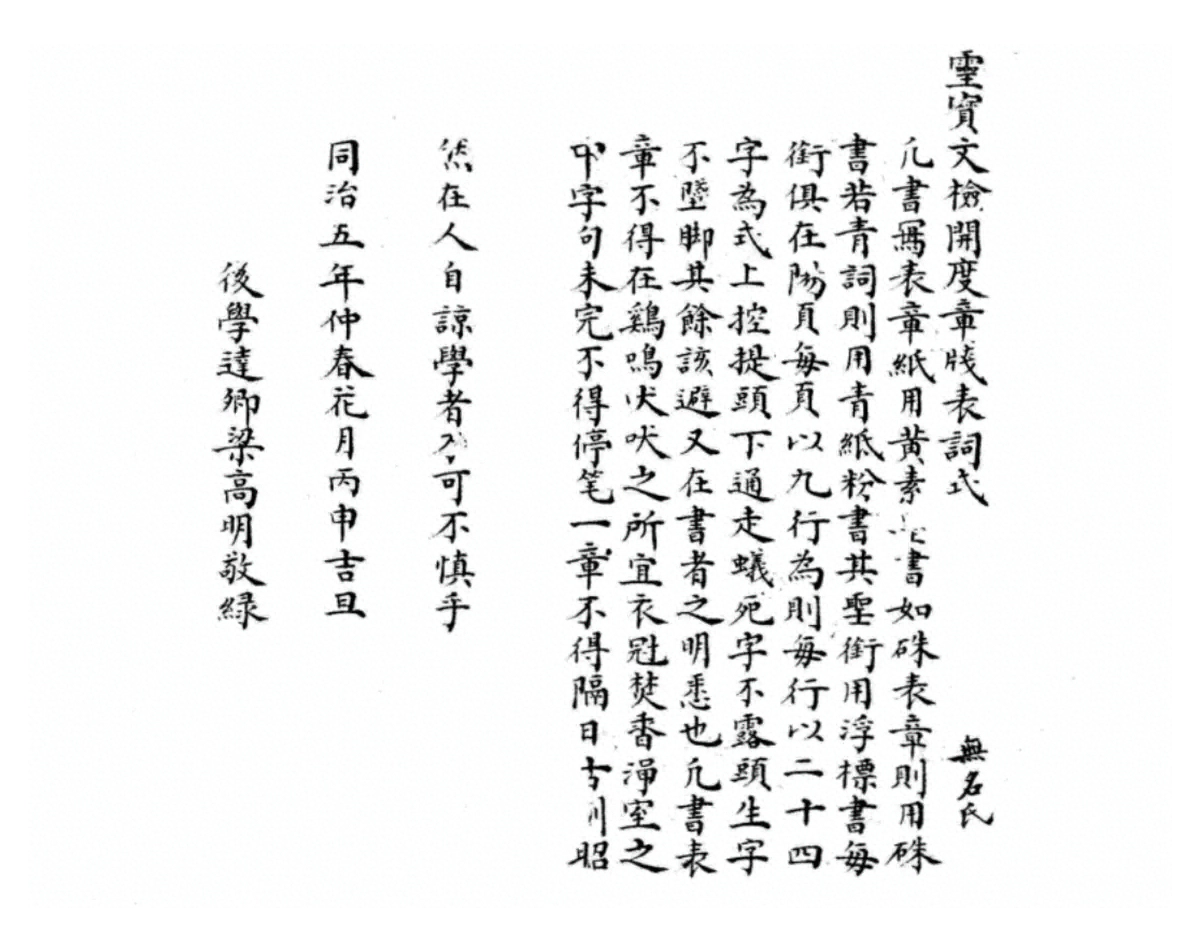 霊寳文檢開度章牋表詞式
無名氏
凢書冩表章紙用黄素書如硃表章則用硃
書若青詞則用青紙粉書其聖銜用浮標書每
銜俱在陽頁每頁以九行為則每行以二十四
字為式上控提頭下通走蟻死字不露頭生字
不墜脚其餘該避又在書者之明悉也凢書表
章不得在鷄鳴犬吠之所宜衣冠焚香淨室之
中字句未完不得停笔一章不得隔日古列昭
然在人自諒學者可不慎乎
同治五年仲春花月丙申吉旦
後學達卿梁高明敬緑